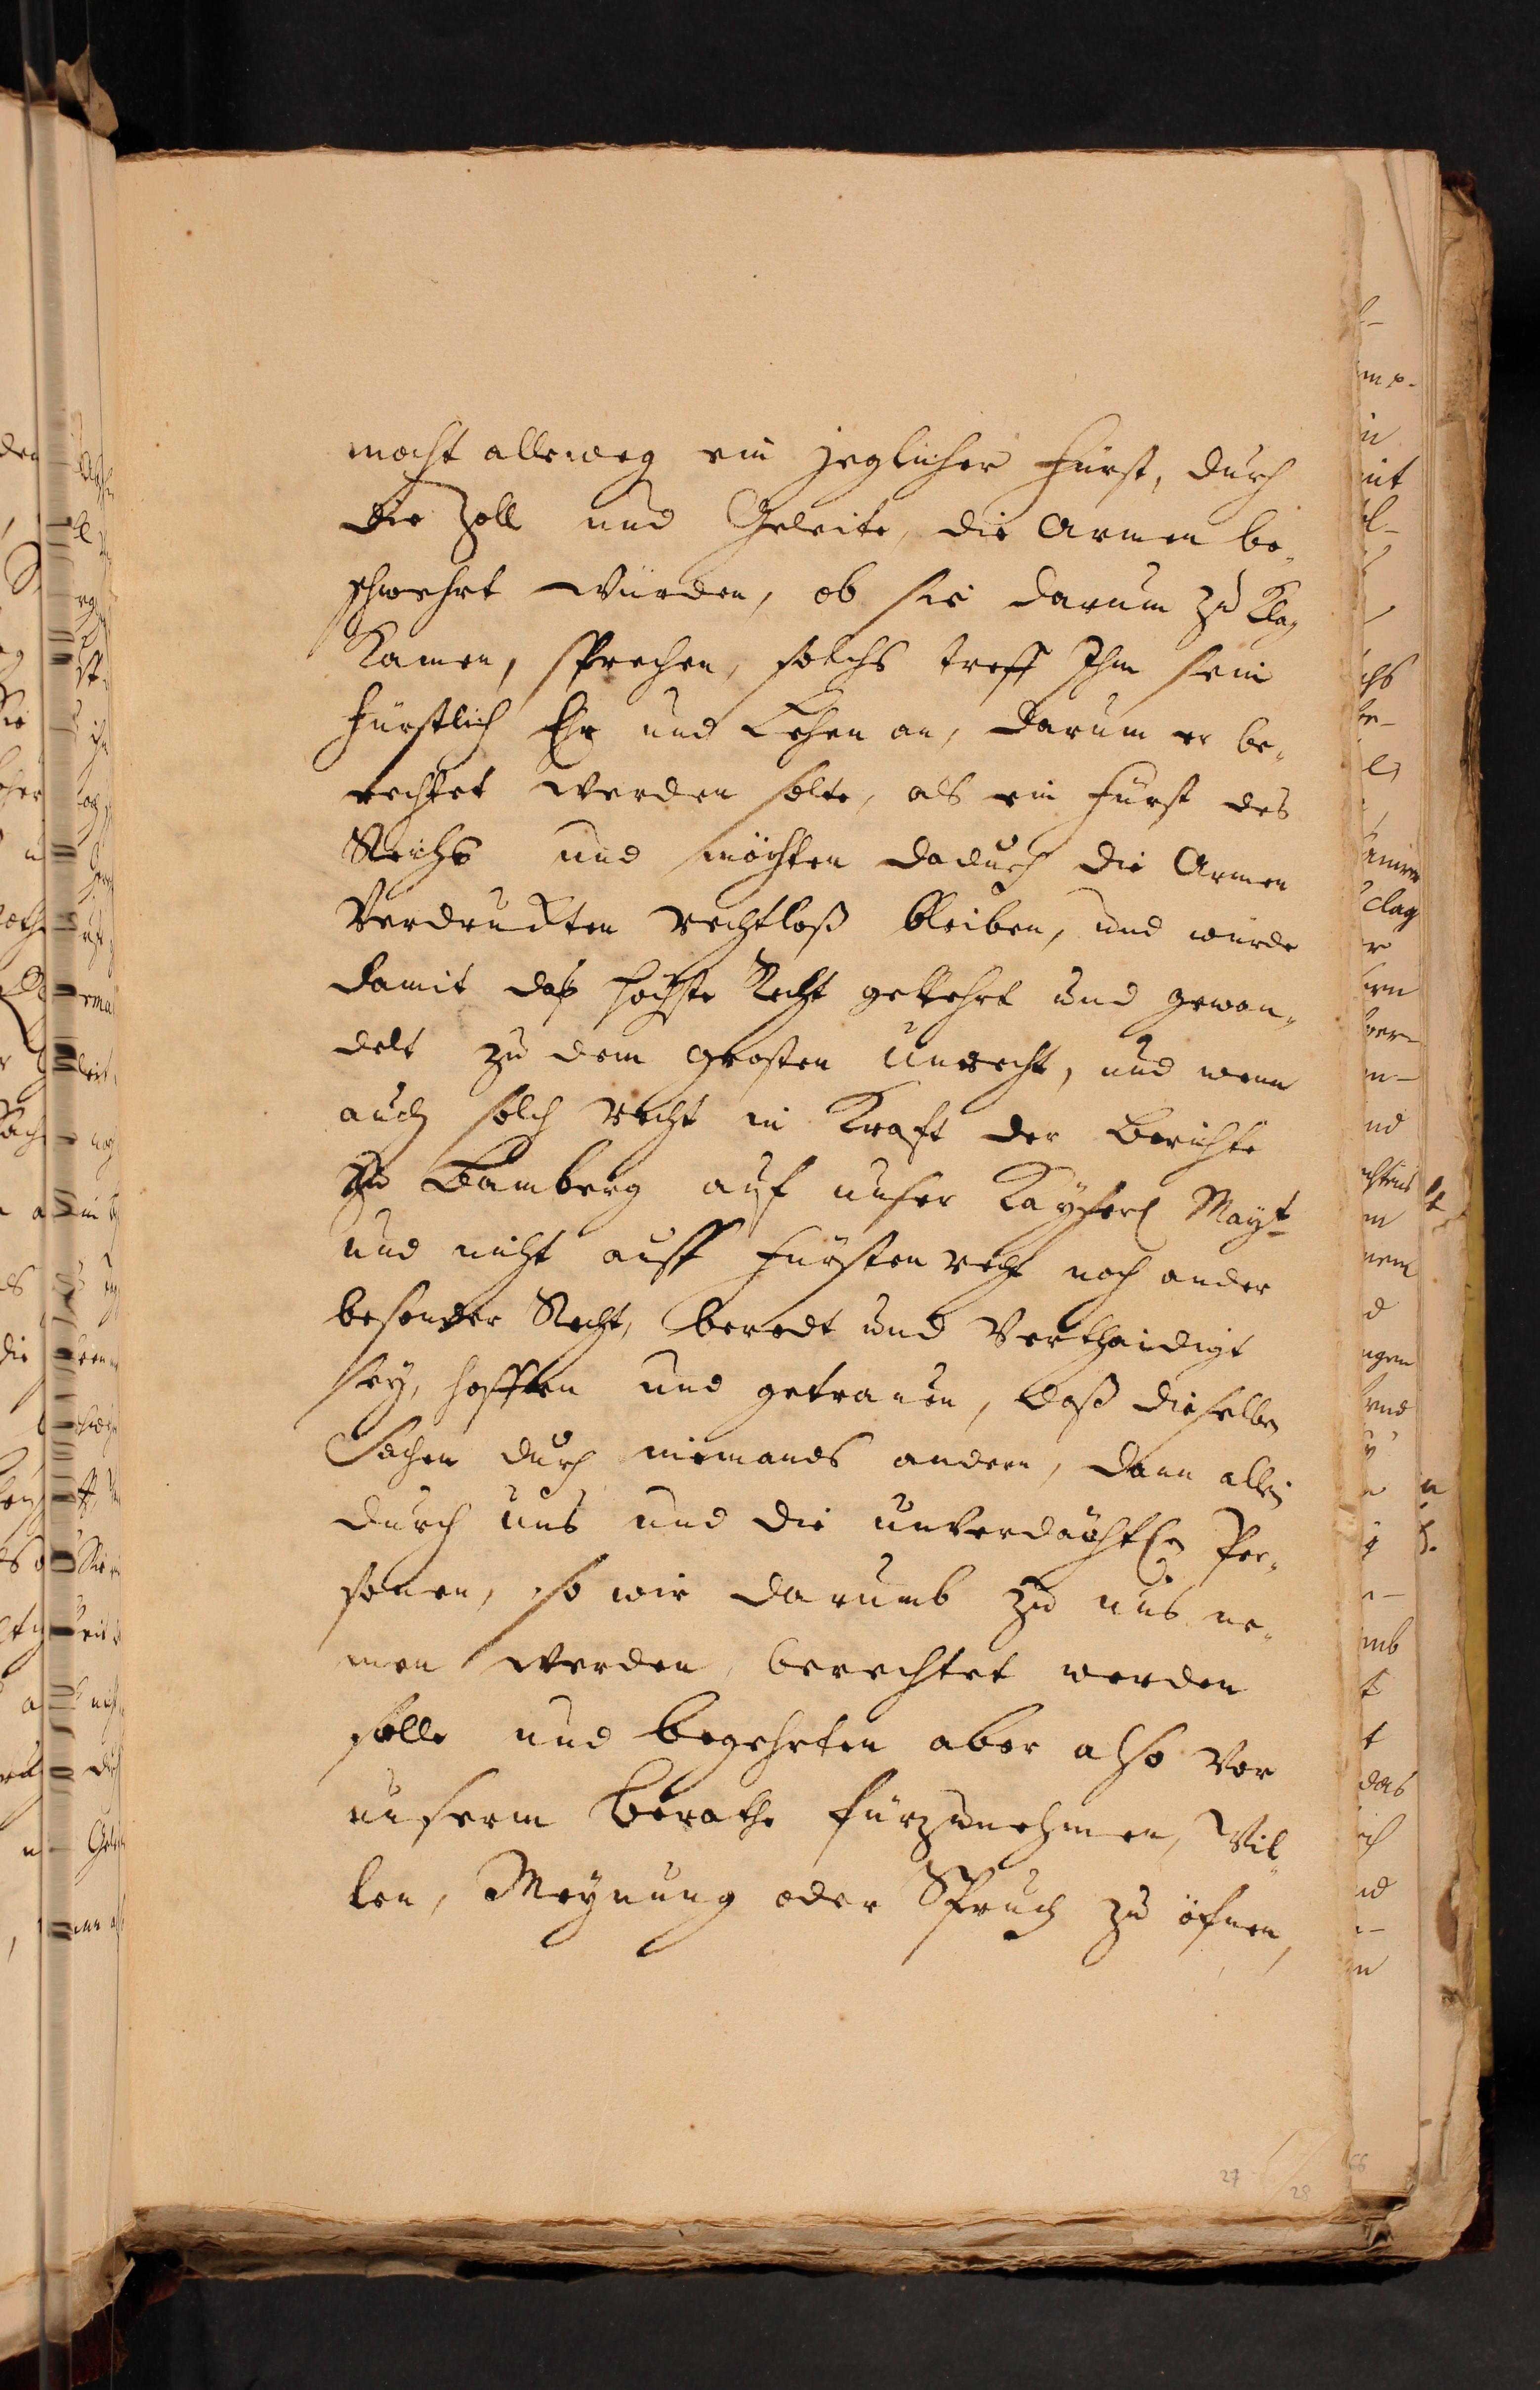 mocht alleweg ein jeglicher Fürst, durch
die Zoll und Geleite, die Armen be„
schwehrt würden, ob sie darum zu Klag
Kamen, sprechen, solchs treff Ihm sein
Fürstlich Ehr und Lehen an, darum er be„
rechtet werden solte, als ein Fürst des
Reichs und möchten dadurch die Armen
Verdruckten rechtloß bleiben, und würde
damit daß höchste Recht gekehrt und gewan„
delt zu dem grosten Unrecht, und wenn
auch solch recht in Krafft der Berichte
zu Bamberg auf unser Kayserl Mayt
und nicht auff Fürsten recht noch ander
besonder Recht, beredt und Verthaidigt
sey, hofften und getrauen, daß dieselben
Sachen durch niemands andern, dann allein
durch uns und die unverdächten Per„
sonen, so wir darumb zu uns ne„
men werden, berechtet werden
solle und begehrten aber also vor
unserm berathe fürzunehmen, Wil„
len, Meynung oder Spruch zu öfnen,
27
28